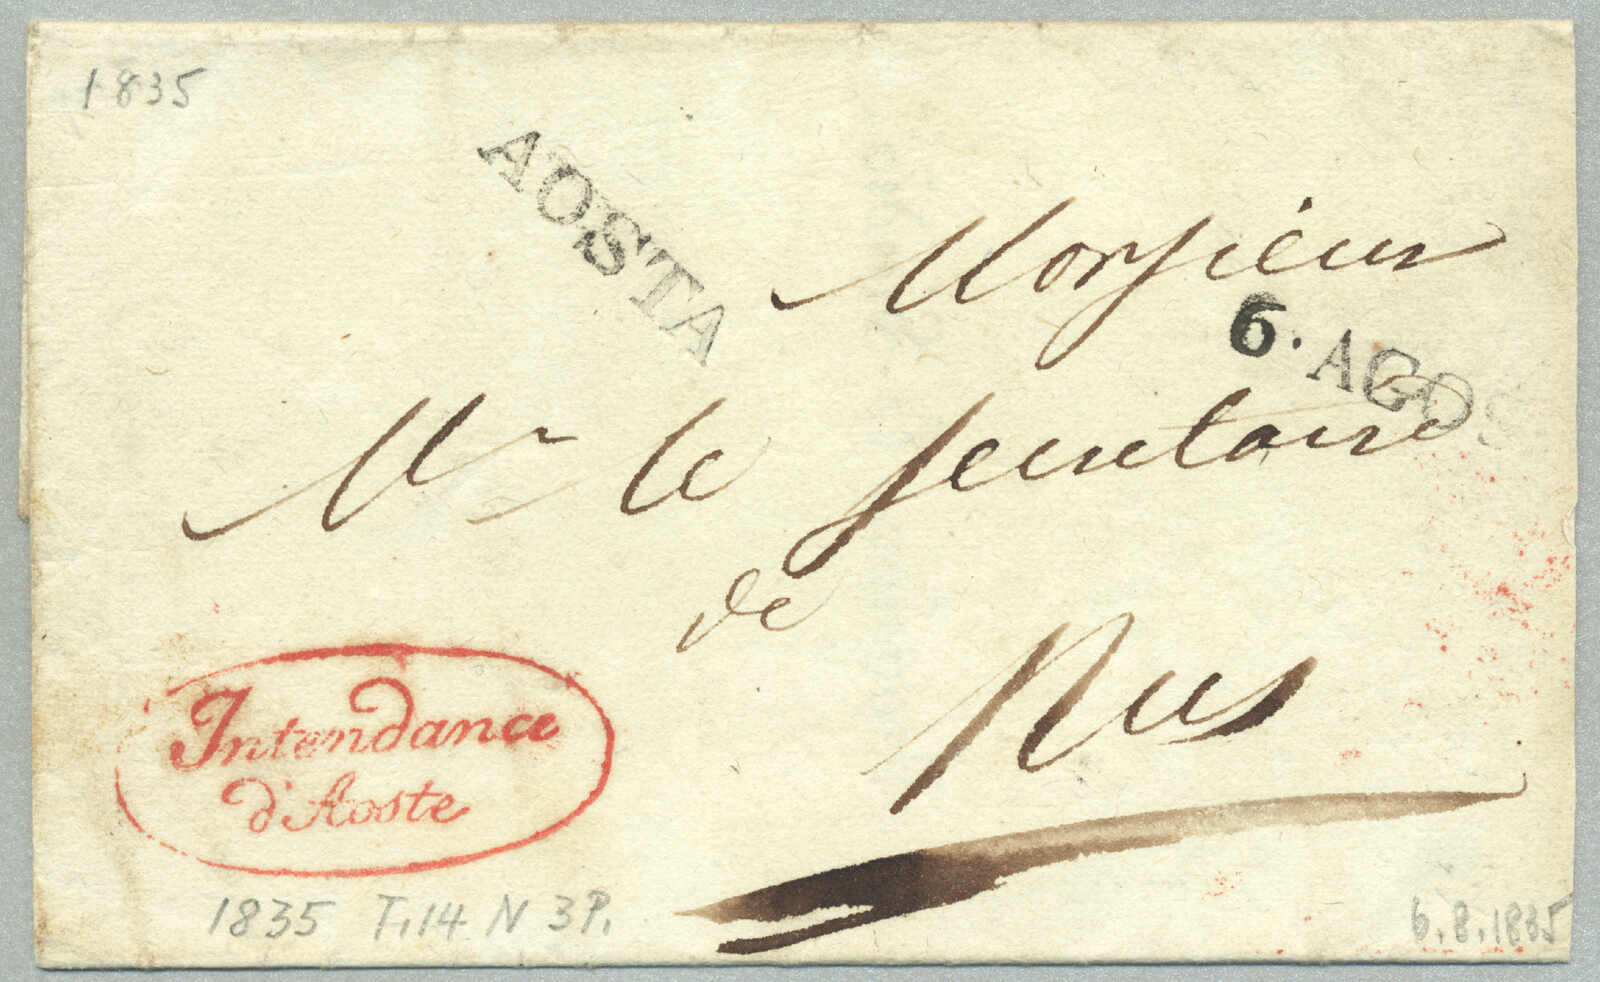 1835
AOSTA
Monsieur
6. AGOS
Mr le Secretaire
de
Nus
Intendance
d'Aoste
1835 T.14 N 3P.
6.8.1835